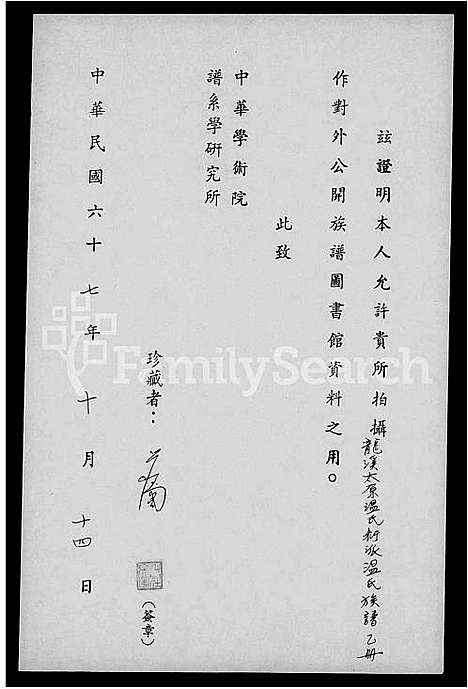 茲證明本人允許貴所拍攝龍溪太原溫氏衍派溫氏族譜乙冊
作對外公開族譜圖書館資料之用。
此致
中華學術院
譜系學研究所
珍藏者：
（簽章）
中華民國六十七年十月十四日
FamilySearch